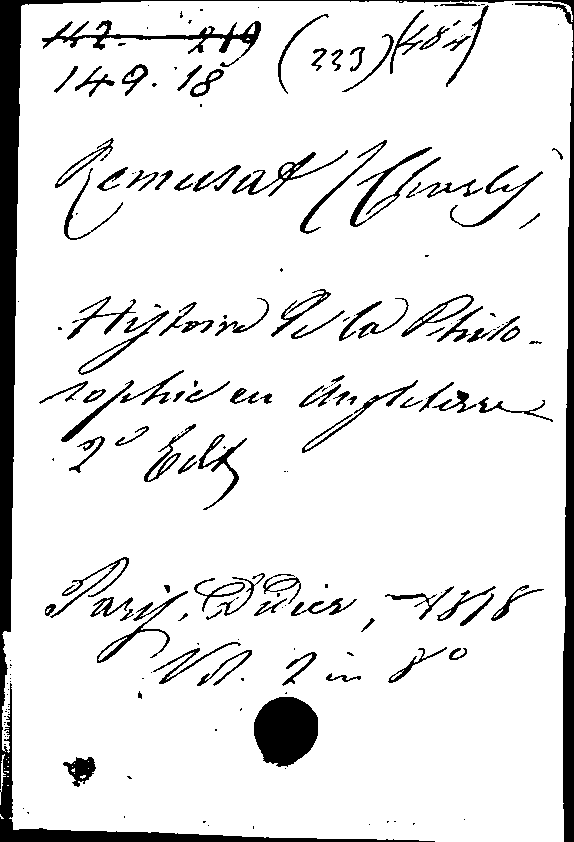 142. 219
149. 18 (333) (484)
Remusat (Charles),
Histoire de la Philo-
sophie en Angleterre
2ª Edt
Paris, Didier, 1878
Vol. 2 in 8º